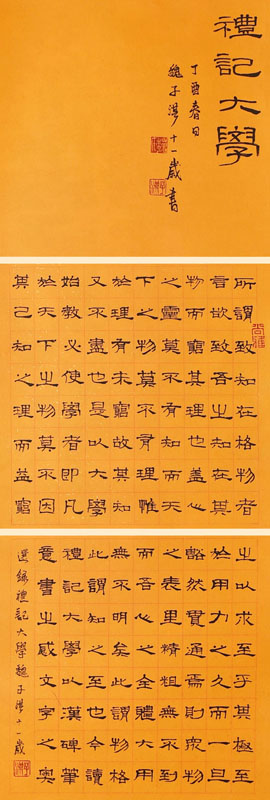 禮記大學
丁酉春日
魏子淏十一歲書
所謂致知在格物者
言欲致吾之知在其
物而窮其理也蓋心
之靈莫不有知而天
下之物莫不有理惟
於理有未窮故其知
又不盡也是以大學
始教必使學者即凡
於天下之物莫不因
其已知之理而益窮
之以求至乎其極至
於用力之久而一旦
豁然貫通焉則衆物
之表里精粗無不到
而吾心之全體大用
無不明矣此謂物格
此謂知之至也今讀
禮記大學以漢碑筆
意書之感文字之奧
選錄禮記大學魏子淏十一歲